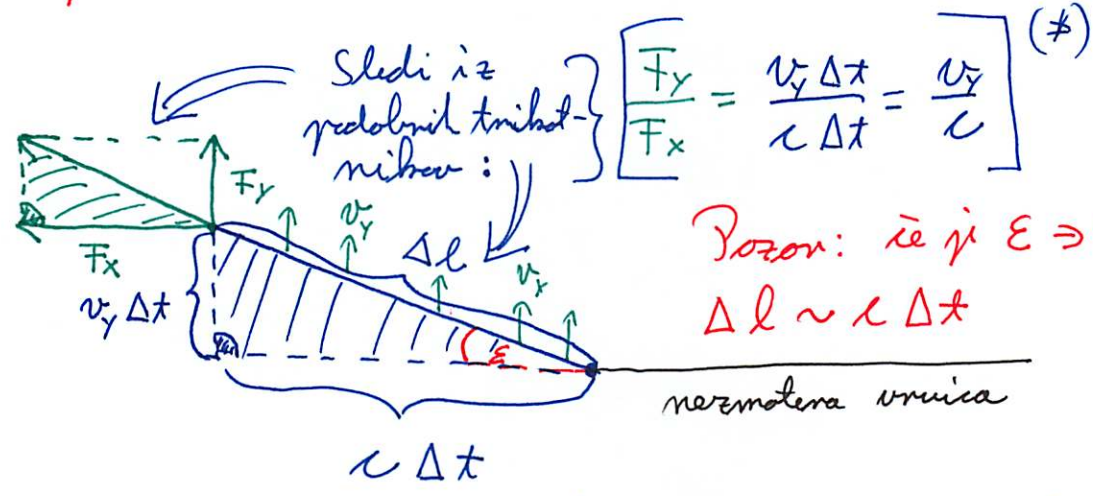 Sledi iz
podobnih trikot-
nikov :
F_Y / F_X = v_Y Δt / c Δt = v_Y / c (*)
F_Y
F_X
v_Y
Δl
v_Y
v_Y Δt
ε
c Δt
Pozor: če je ε ⇒
Δl ~ c Δt
nezmotena vrvica